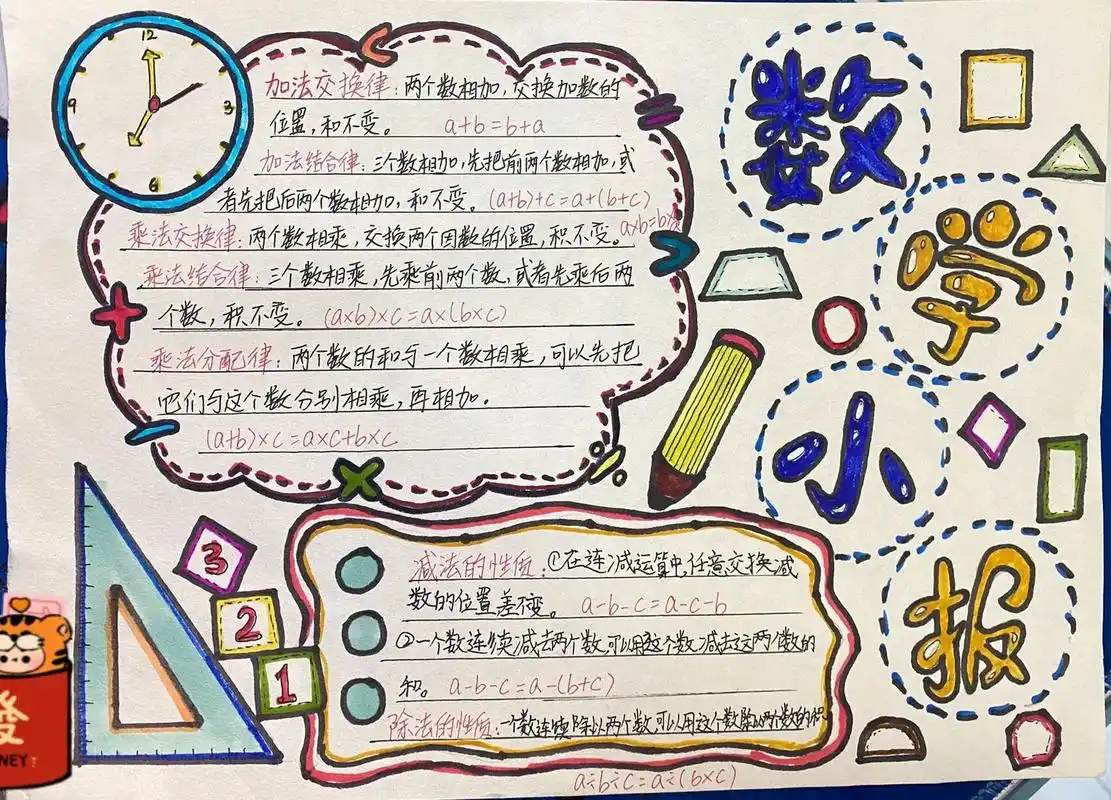 12
3
6
9
加法交换律：两个数相加，交换加数的
位置，和不变。 a+b=b+a
加法结合律：三个数相加，先把前两个数相加，或
者先把后两个数相加，和不变。(a+b)+c=a+(b+c)
乘法交换律：两个数相乘，交换两个因数的位置，积不变。a×b=b×a
乘法结合律：三个数相乘，先乘前两个数，或者先乘后两
个数，积不变。(a×b)×c=a×(b×c)
乘法分配律：两个数的和与一个数相乘，可以先把
它们与这个数分别相乘，再相加。
(a+b)×c=a×c+b×c
数
学
小
报
3
2
1
减法的性质：①在连减运算中，任意交换减
数的位置差不变。 a-b-c=a-c-b
②一个数连续减去两个数，可以用这个数减去这两个数的
和。 a-b-c=a-(b+c)
除法的性质：一个数连续除以两个数，可以用这个数除以两个数的积
a÷b÷c=a÷(b×c)
發
NEY